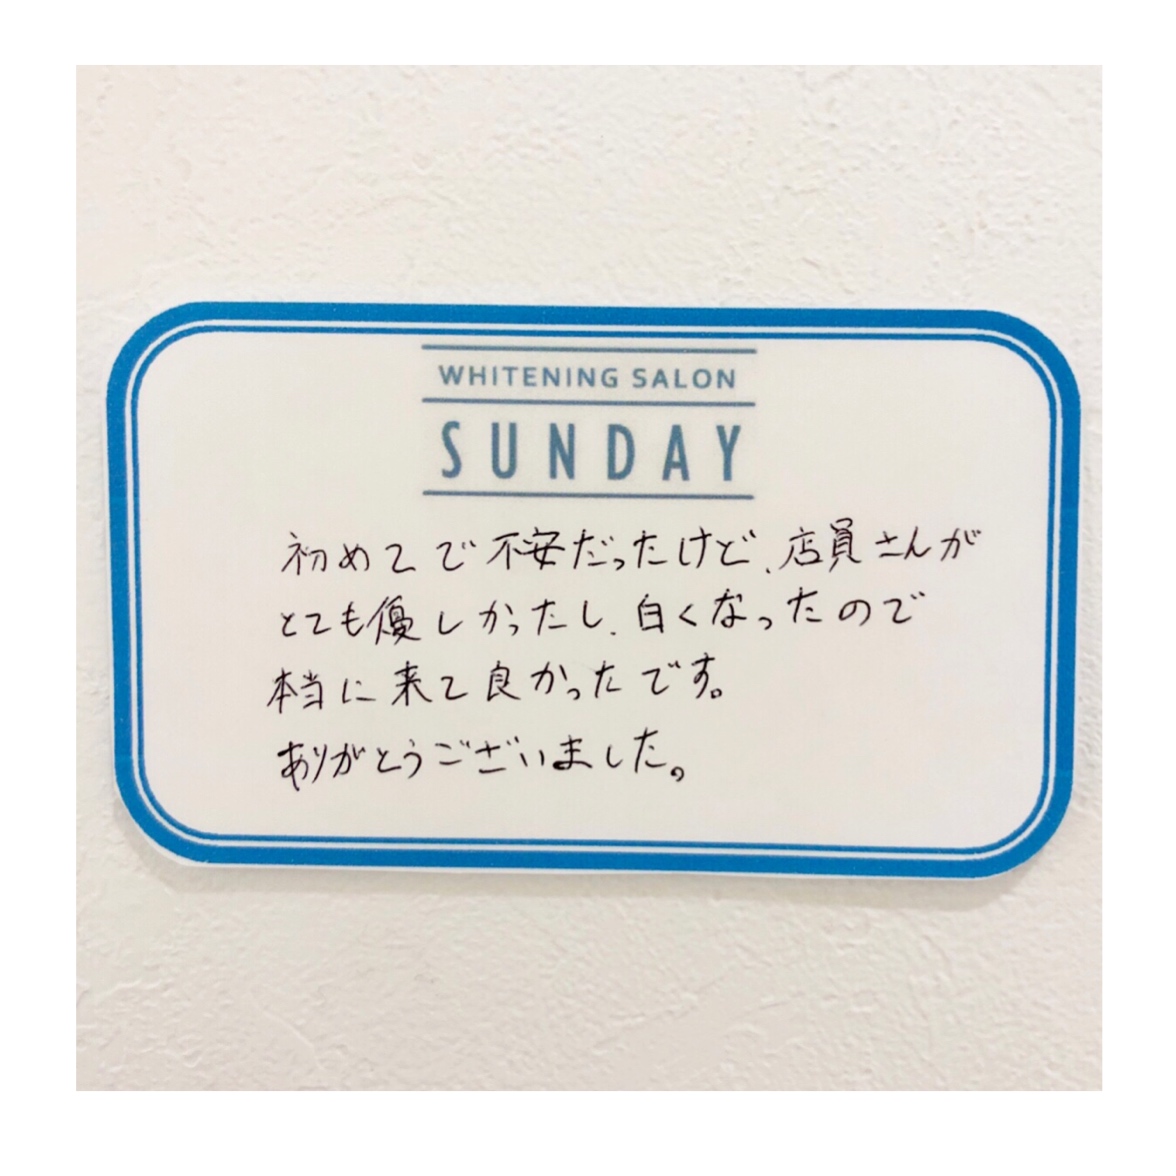 WHITENING SALON
SUNDAY
初めてで不安だったけど、店員さんが
とても優しかったし、白くなったので
本当に来て良かったです。
ありがとうございました。